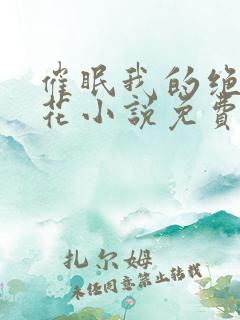 催眠我的绝
花小说免费
扎尔姆
未经同意禁止转载